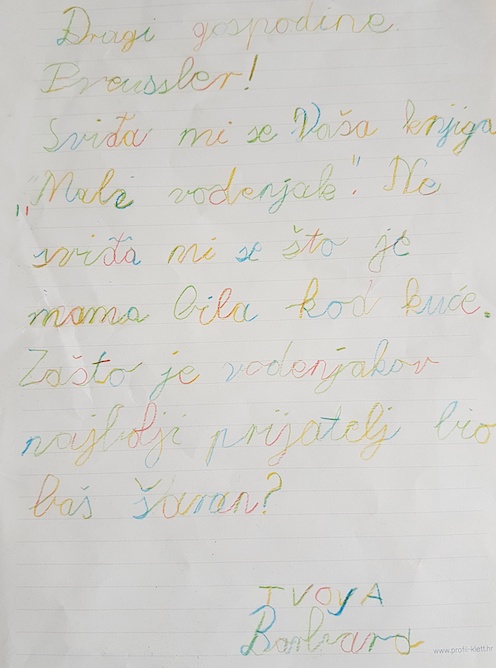 Dragi gospodine
Preussler!
Sviđa mi se Vaša knjiga
„Mali vodenjak". Ne
sviđa mi se što je
mama bila kod kuće.
Zašto je vodenjakov
najbolji prijatelj bio
baš šaran?
TVOJA
Barbara
www.profil-klett.hr